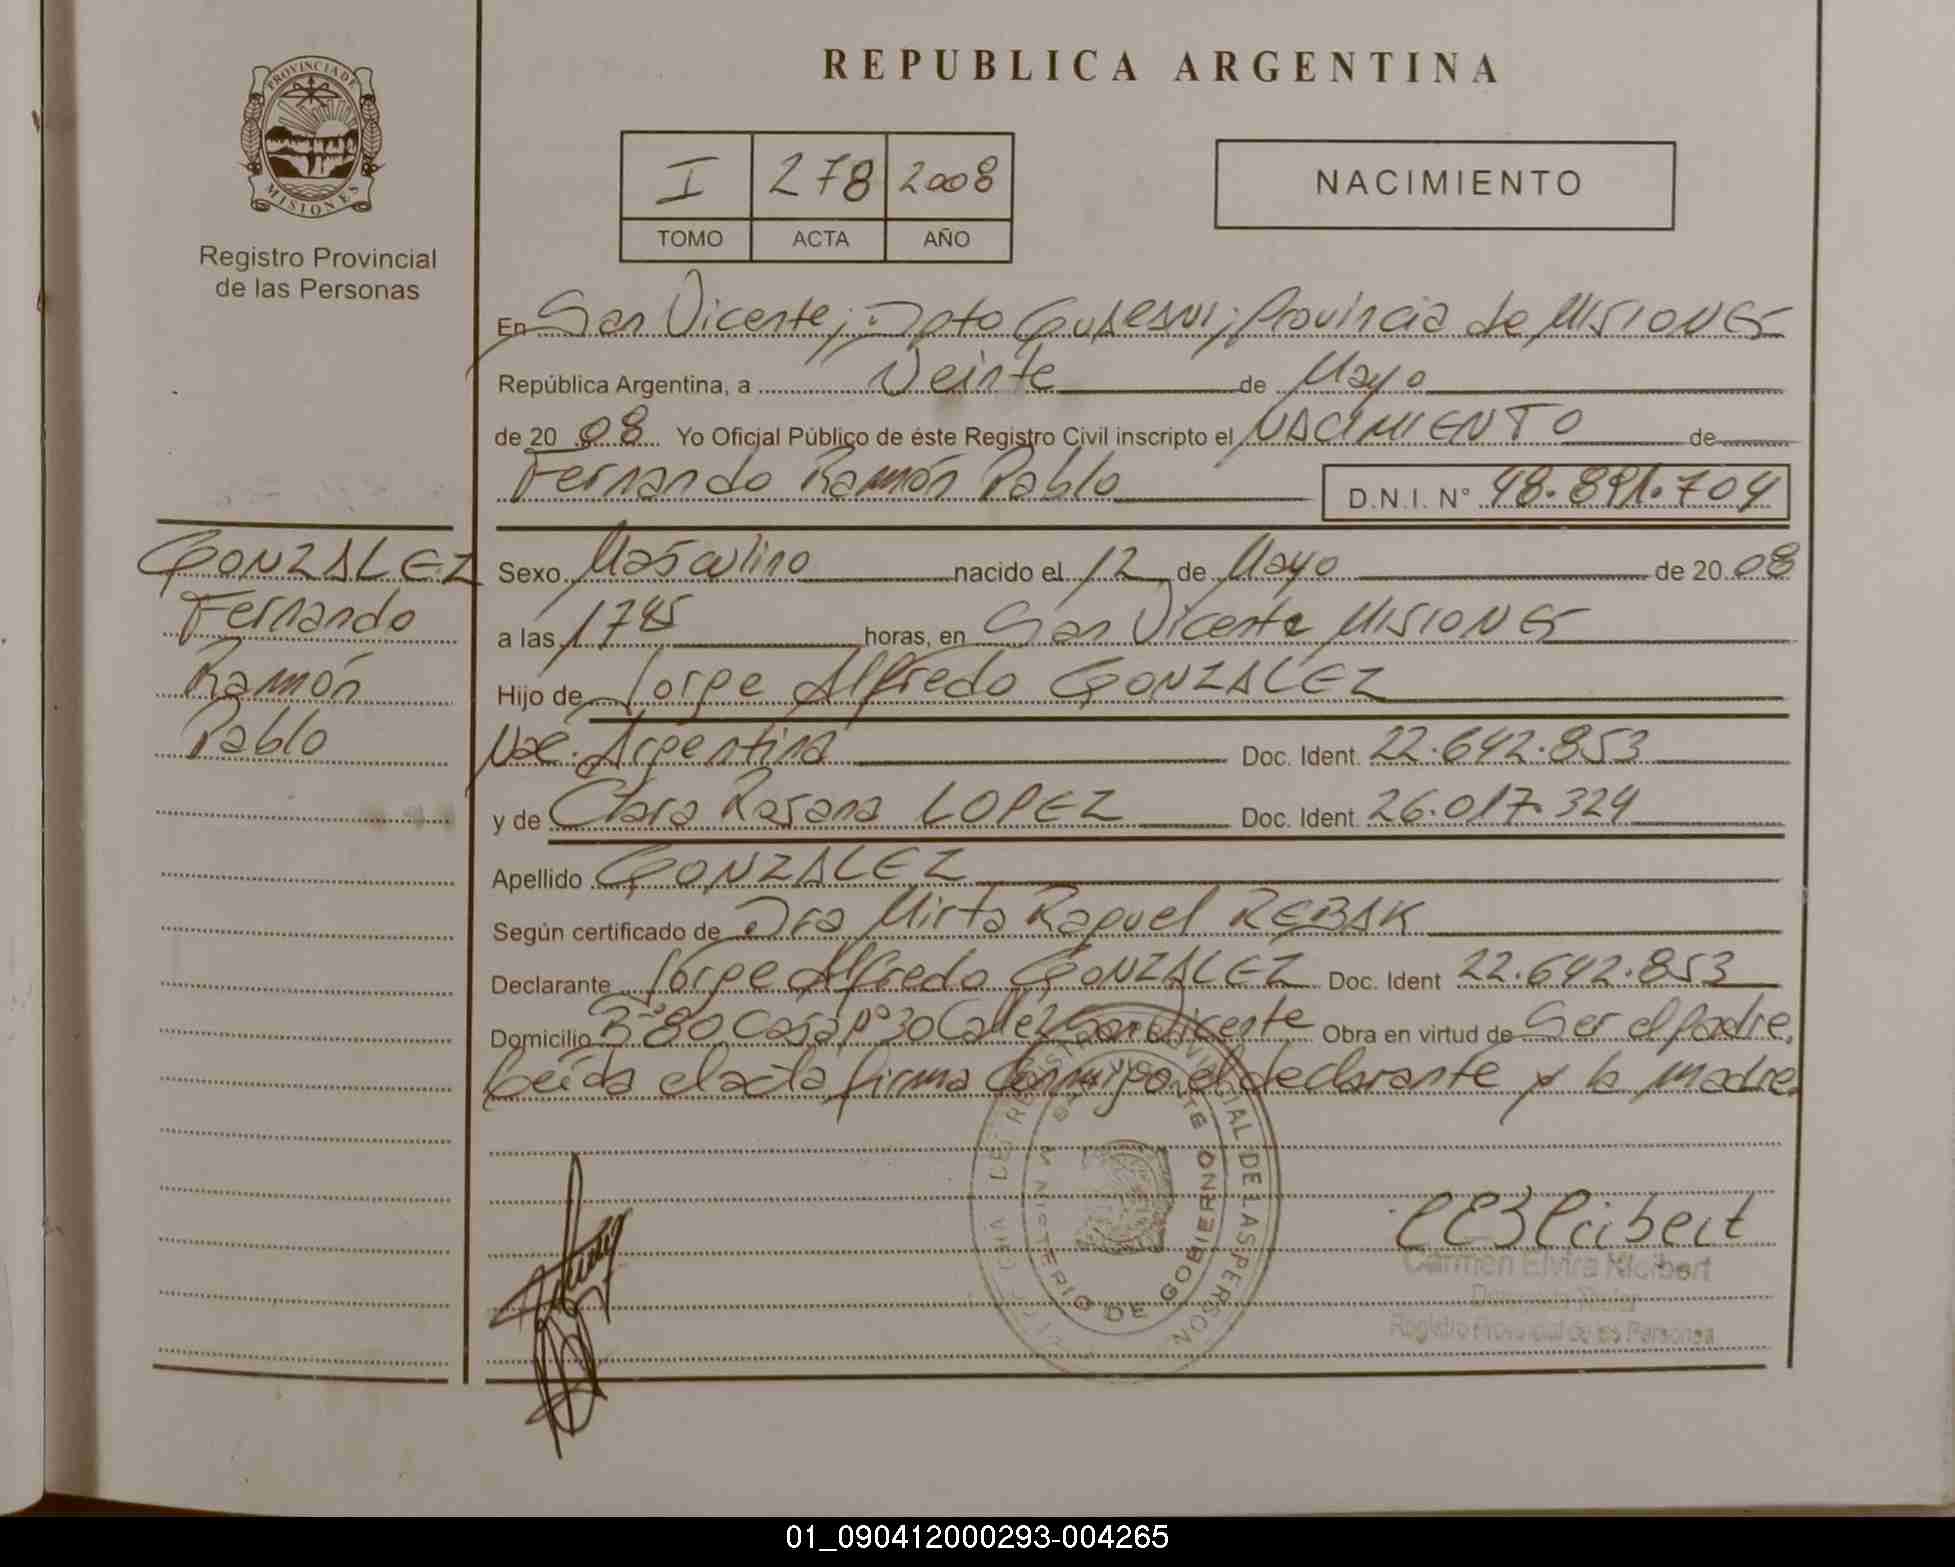 PROVINCIA DE
MISIONES
Registro Provincial
de las Personas
REPUBLICA ARGENTINA
I 278 2008
TOMO ACTA AÑO
NACIMIENTO
En San Vicente; Dpto Guaraní; Provincia de MISIONES
República Argentina, a Veinte de Mayo
de 2008 Yo Oficial Público de éste Registro Civil inscripto el NACIMIENTO de
Fernando Ramón Pablo D.N.I. N° 48.891.704
GONZALEZ
Fernando
Ramón
Pablo
Sexo Masculino nacido el 12 de Mayo de 2008
a las 1745 horas, en San Vicente MISIONES
Hijo de Jorge Alfredo GONZALEZ
Nac. Argentina Doc. Ident. 22.642.853
y de Clara Rosana LOPEZ Doc. Ident. 26.017.324
Apellido GONZALEZ
Según certificado de Dra Mirta Raquel REBAK
Declarante Jorge Alfredo GONZALEZ Doc. Ident 22.642.853
Domicilio B° 80 Casa n° 30 Calle 2 San Vicente Obra en virtud de Ser el padre.
Leída el acta firma Conmigo el declarante y la madre.
REGISTRO PROVINCIAL DE LAS PERSONAS
MINISTERIO DE GOBIERNO
Carmen Elvira Kleibert
Registro Provincial de las Personas
01_090412000293-004265